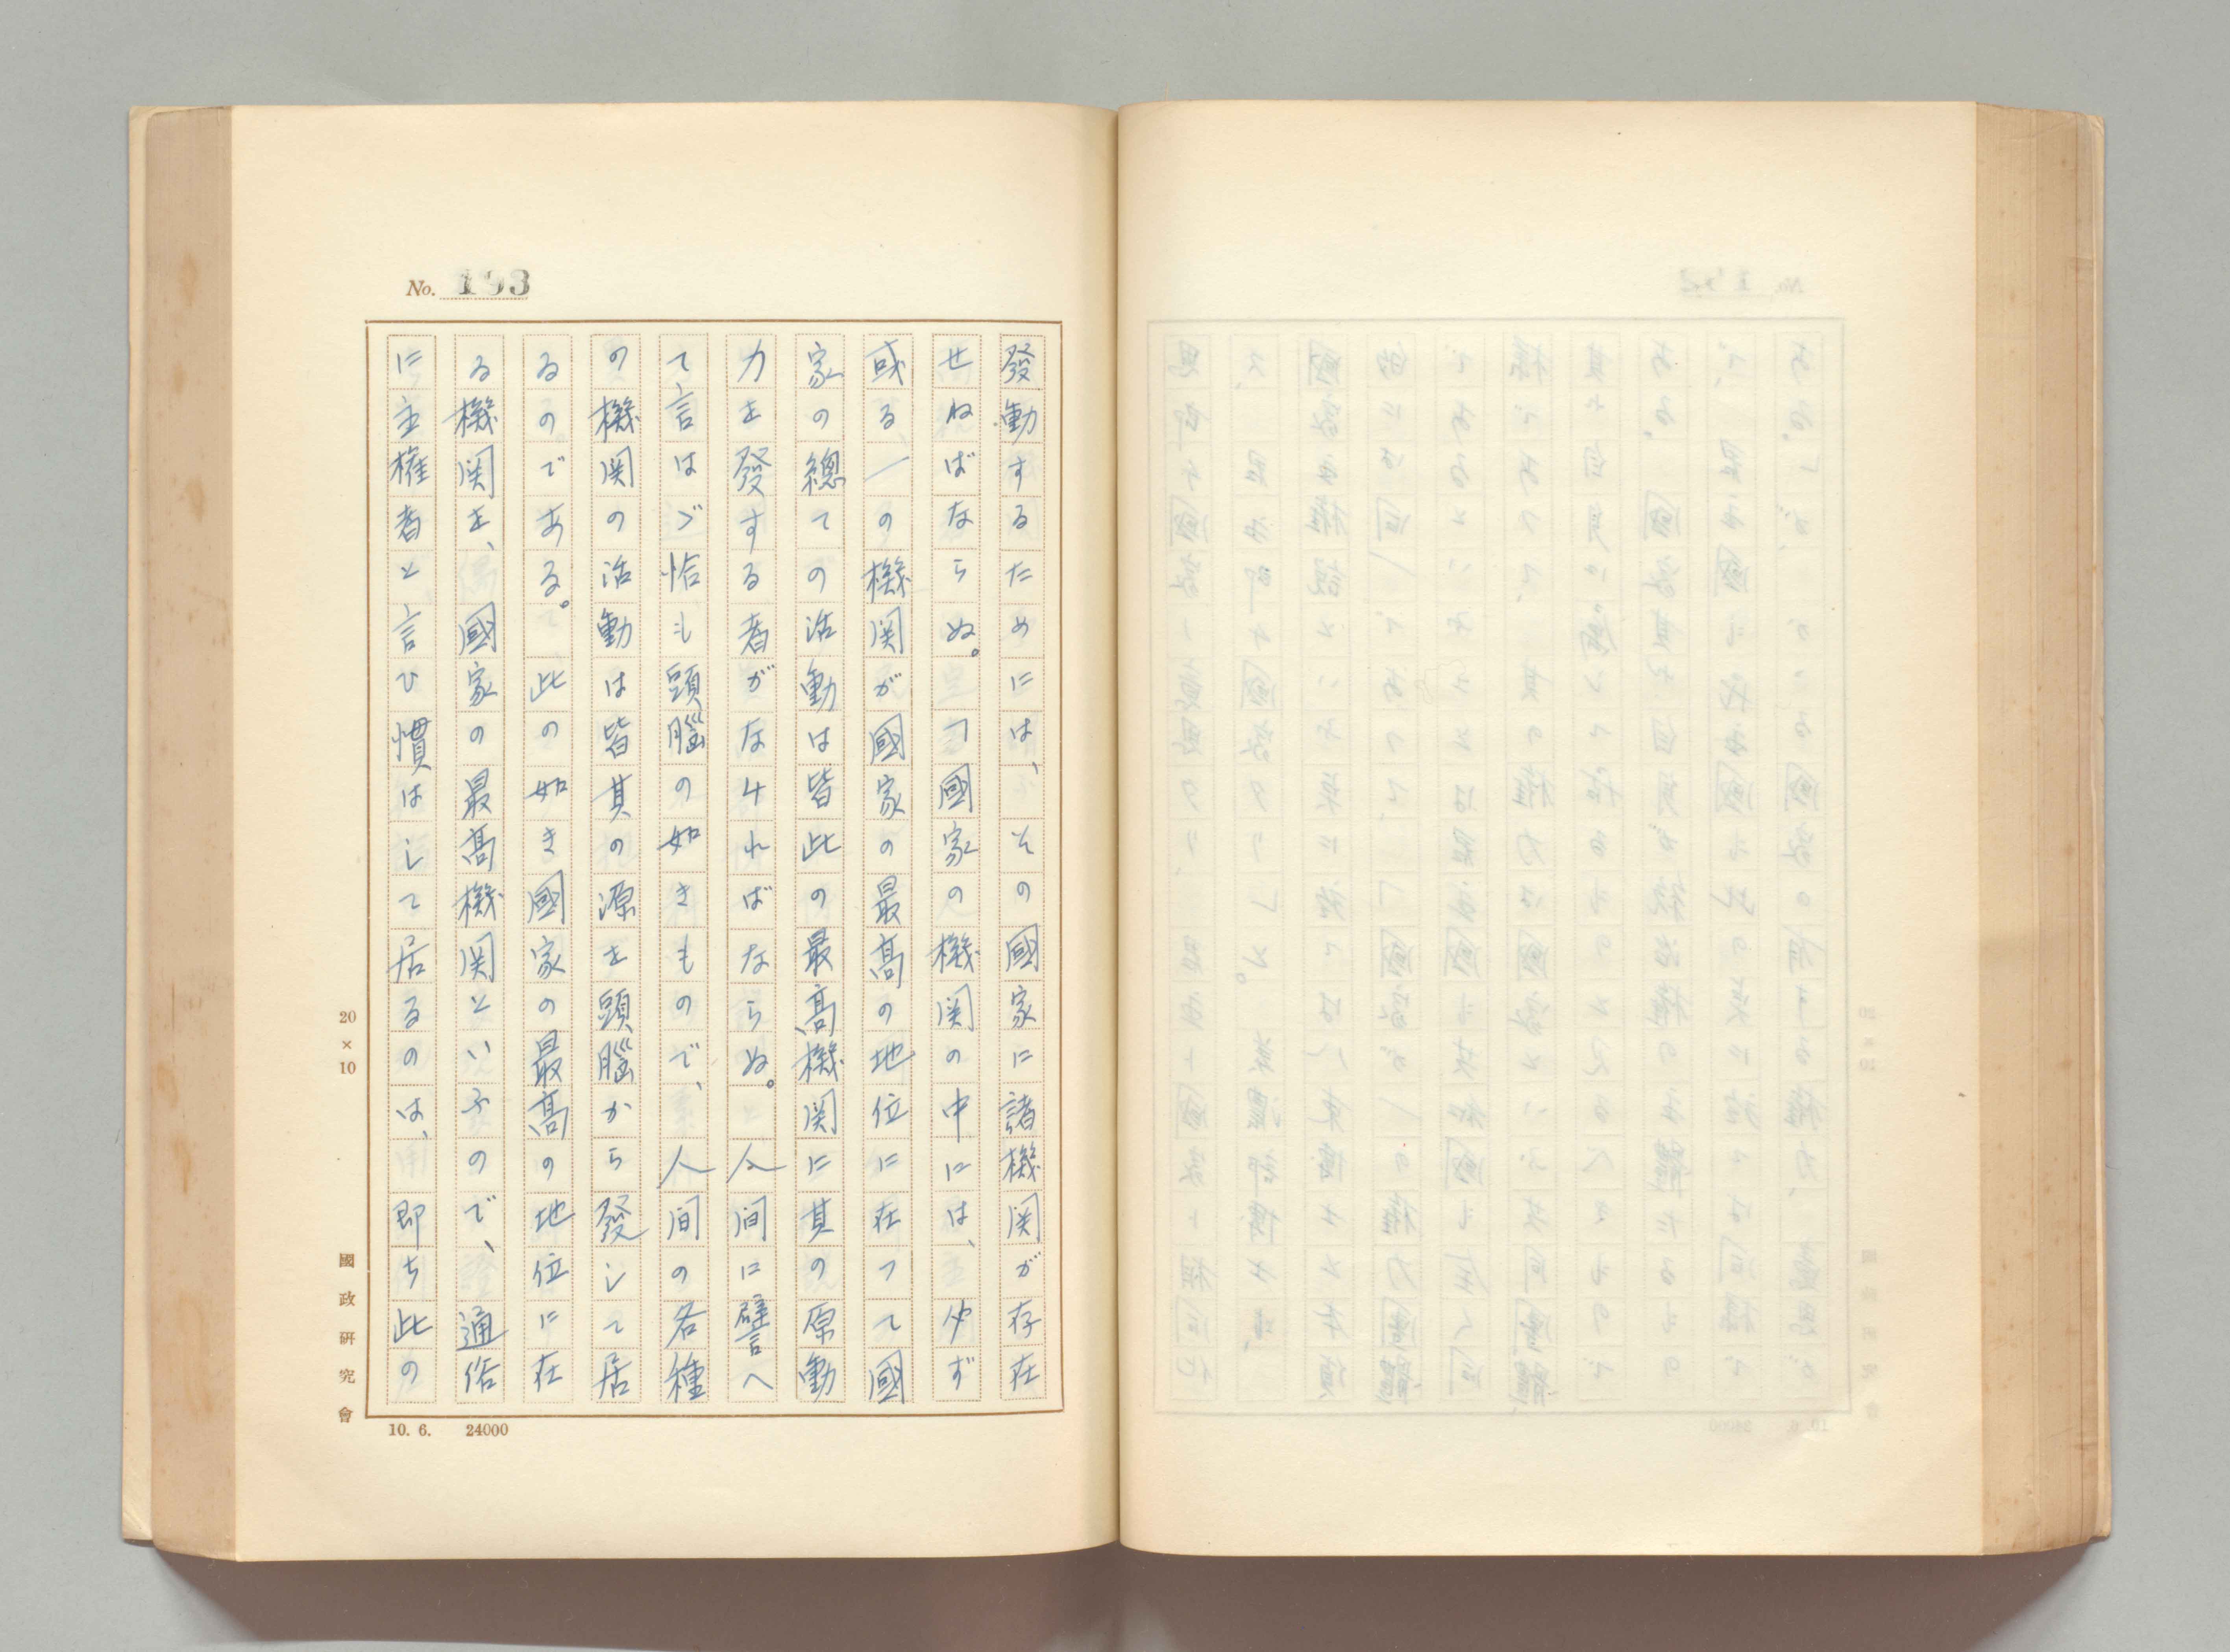 No. 193
發動するためには、その國家に諸機関が存在
せねばならぬ。一つ國家の機関の中には、必ず
或る一の機関が國家の最高の地位に在つて國
家の總ての活動は皆此の最高機関に其の原動
力を發する者がなければならぬ。人間に譬へ
て言はゞ恰も頭腦の如きもので、人間の各種
の機関の活動は皆其の源を頭腦から發して居
るのである。此の如き國家の最高の地位に在
る機関を、國家の最高機関といふので、通俗
に主権者と言ひ慣はして居るのは、即ち此の
20×10
國政研究會
10. 6. 24000